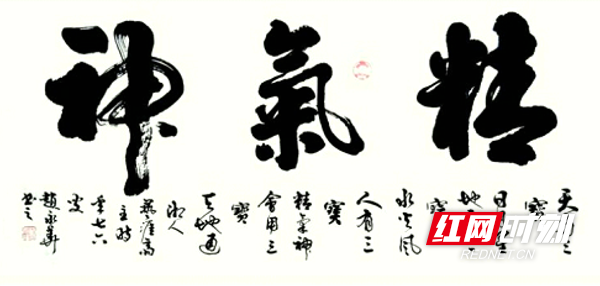 精氣神
天
三
寶
日
地
寶
水火風
人有三
寶
精氣神
會用三
寶
天地通
湘人
主時
年七六
叟
趙永華
書之
红网时刻
REDNET.CN